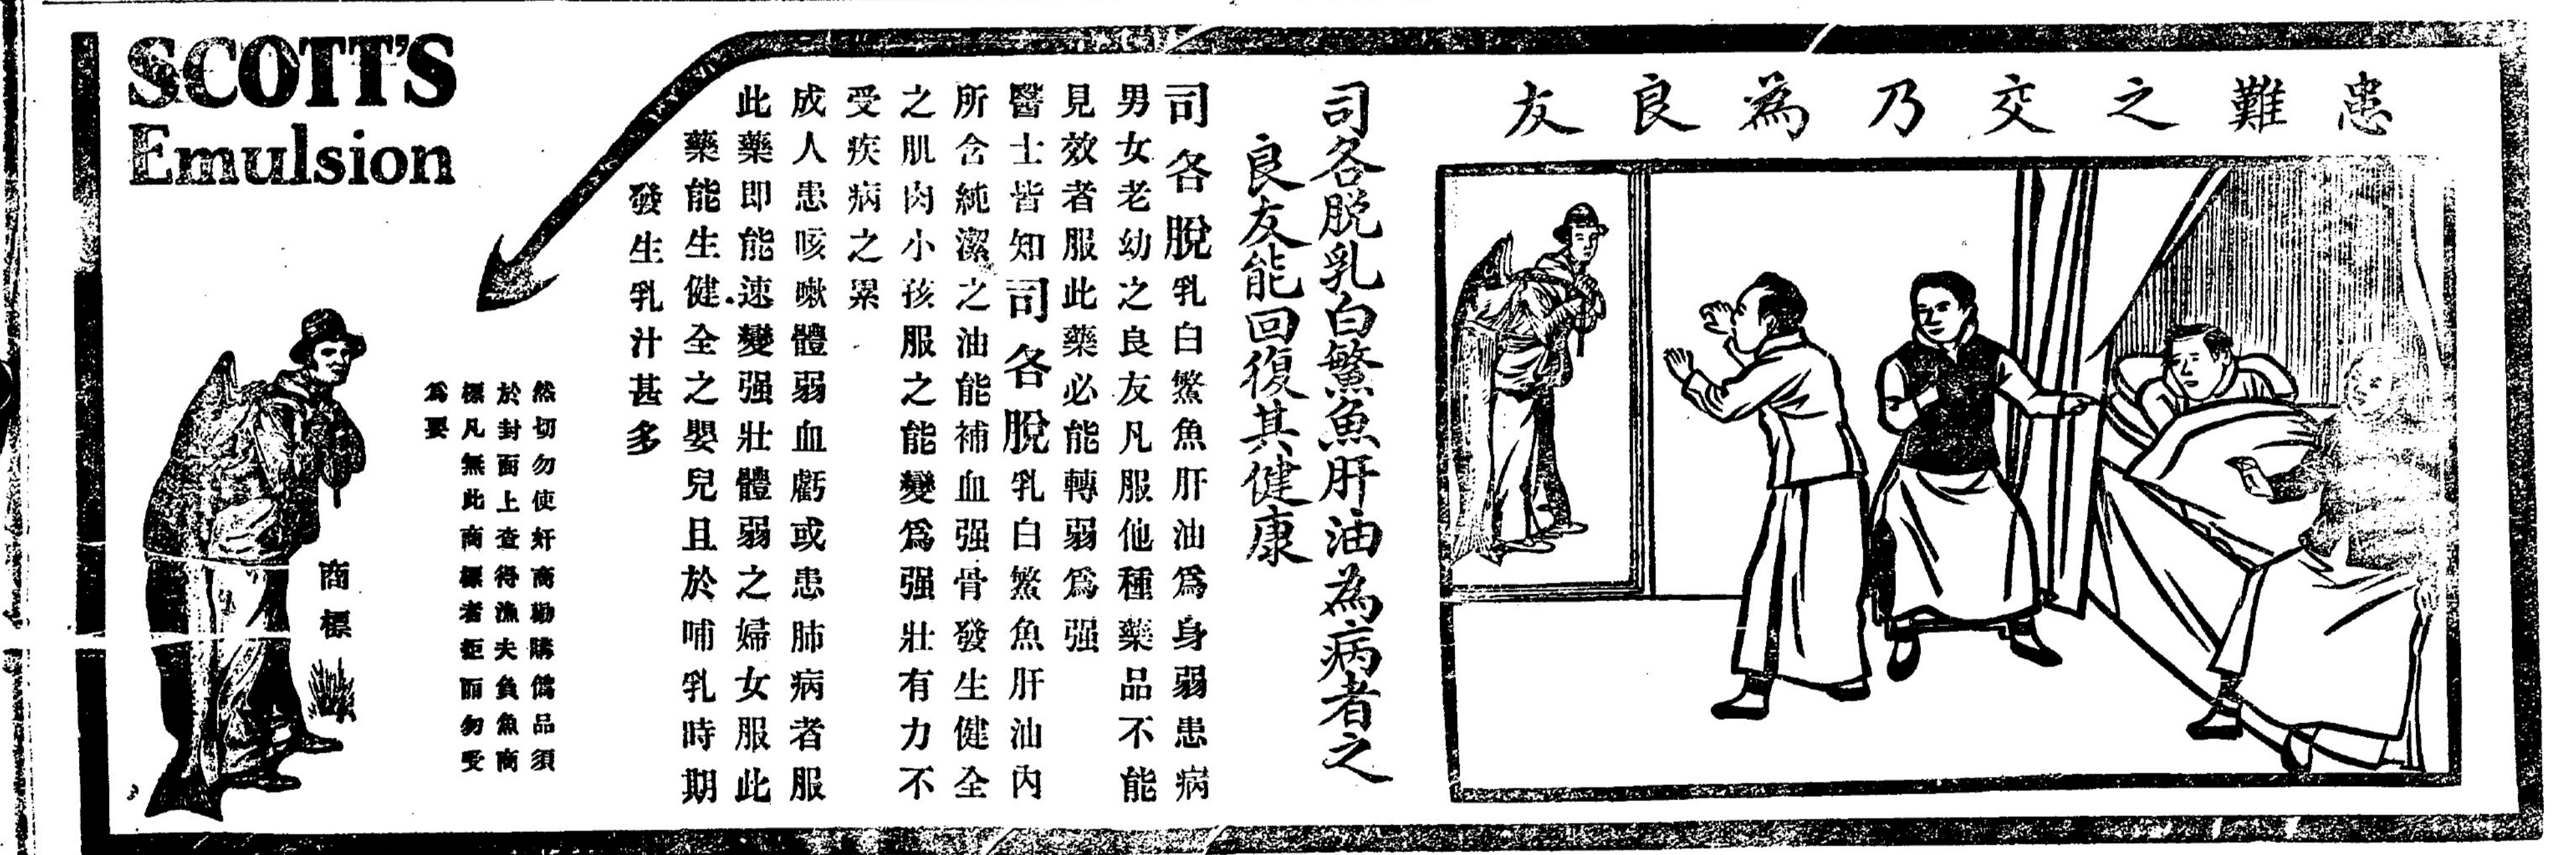 患難之交乃為良友
司各脫乳白鱉魚肝油為病者之
良友能回復其健康
司各脫乳白鱉魚肝油爲身弱患病
男女老幼之良友凡服他種藥品不能
見效者服此藥必能轉弱爲强
醫士皆知司各脫乳白鱉魚肝油內
所含純潔之油能補血强骨發生健全
之肌肉小孩服之能變爲强壯有力不
受疾病之累
成人患咳嗽體弱血虧或患肺病者服
此藥即能速變强壯體弱之婦女服此
藥能生健全之嬰兒且於哺乳時期
發生乳汁甚多
然切勿使奸商勸購僞品須
於封面上查得漁夫負魚商
標凡無此商標者拒而勿受
爲要
SCOTT'S
Emulsion
商標